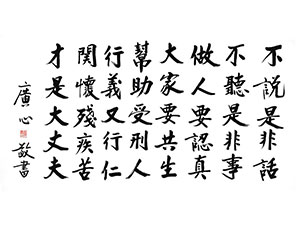 不說是非話
不聽是非事
做人要認真
大家要共生
幫助受刑人
行義又行仁
関懷殘疾苦
才是大丈夫
廣心 敬書